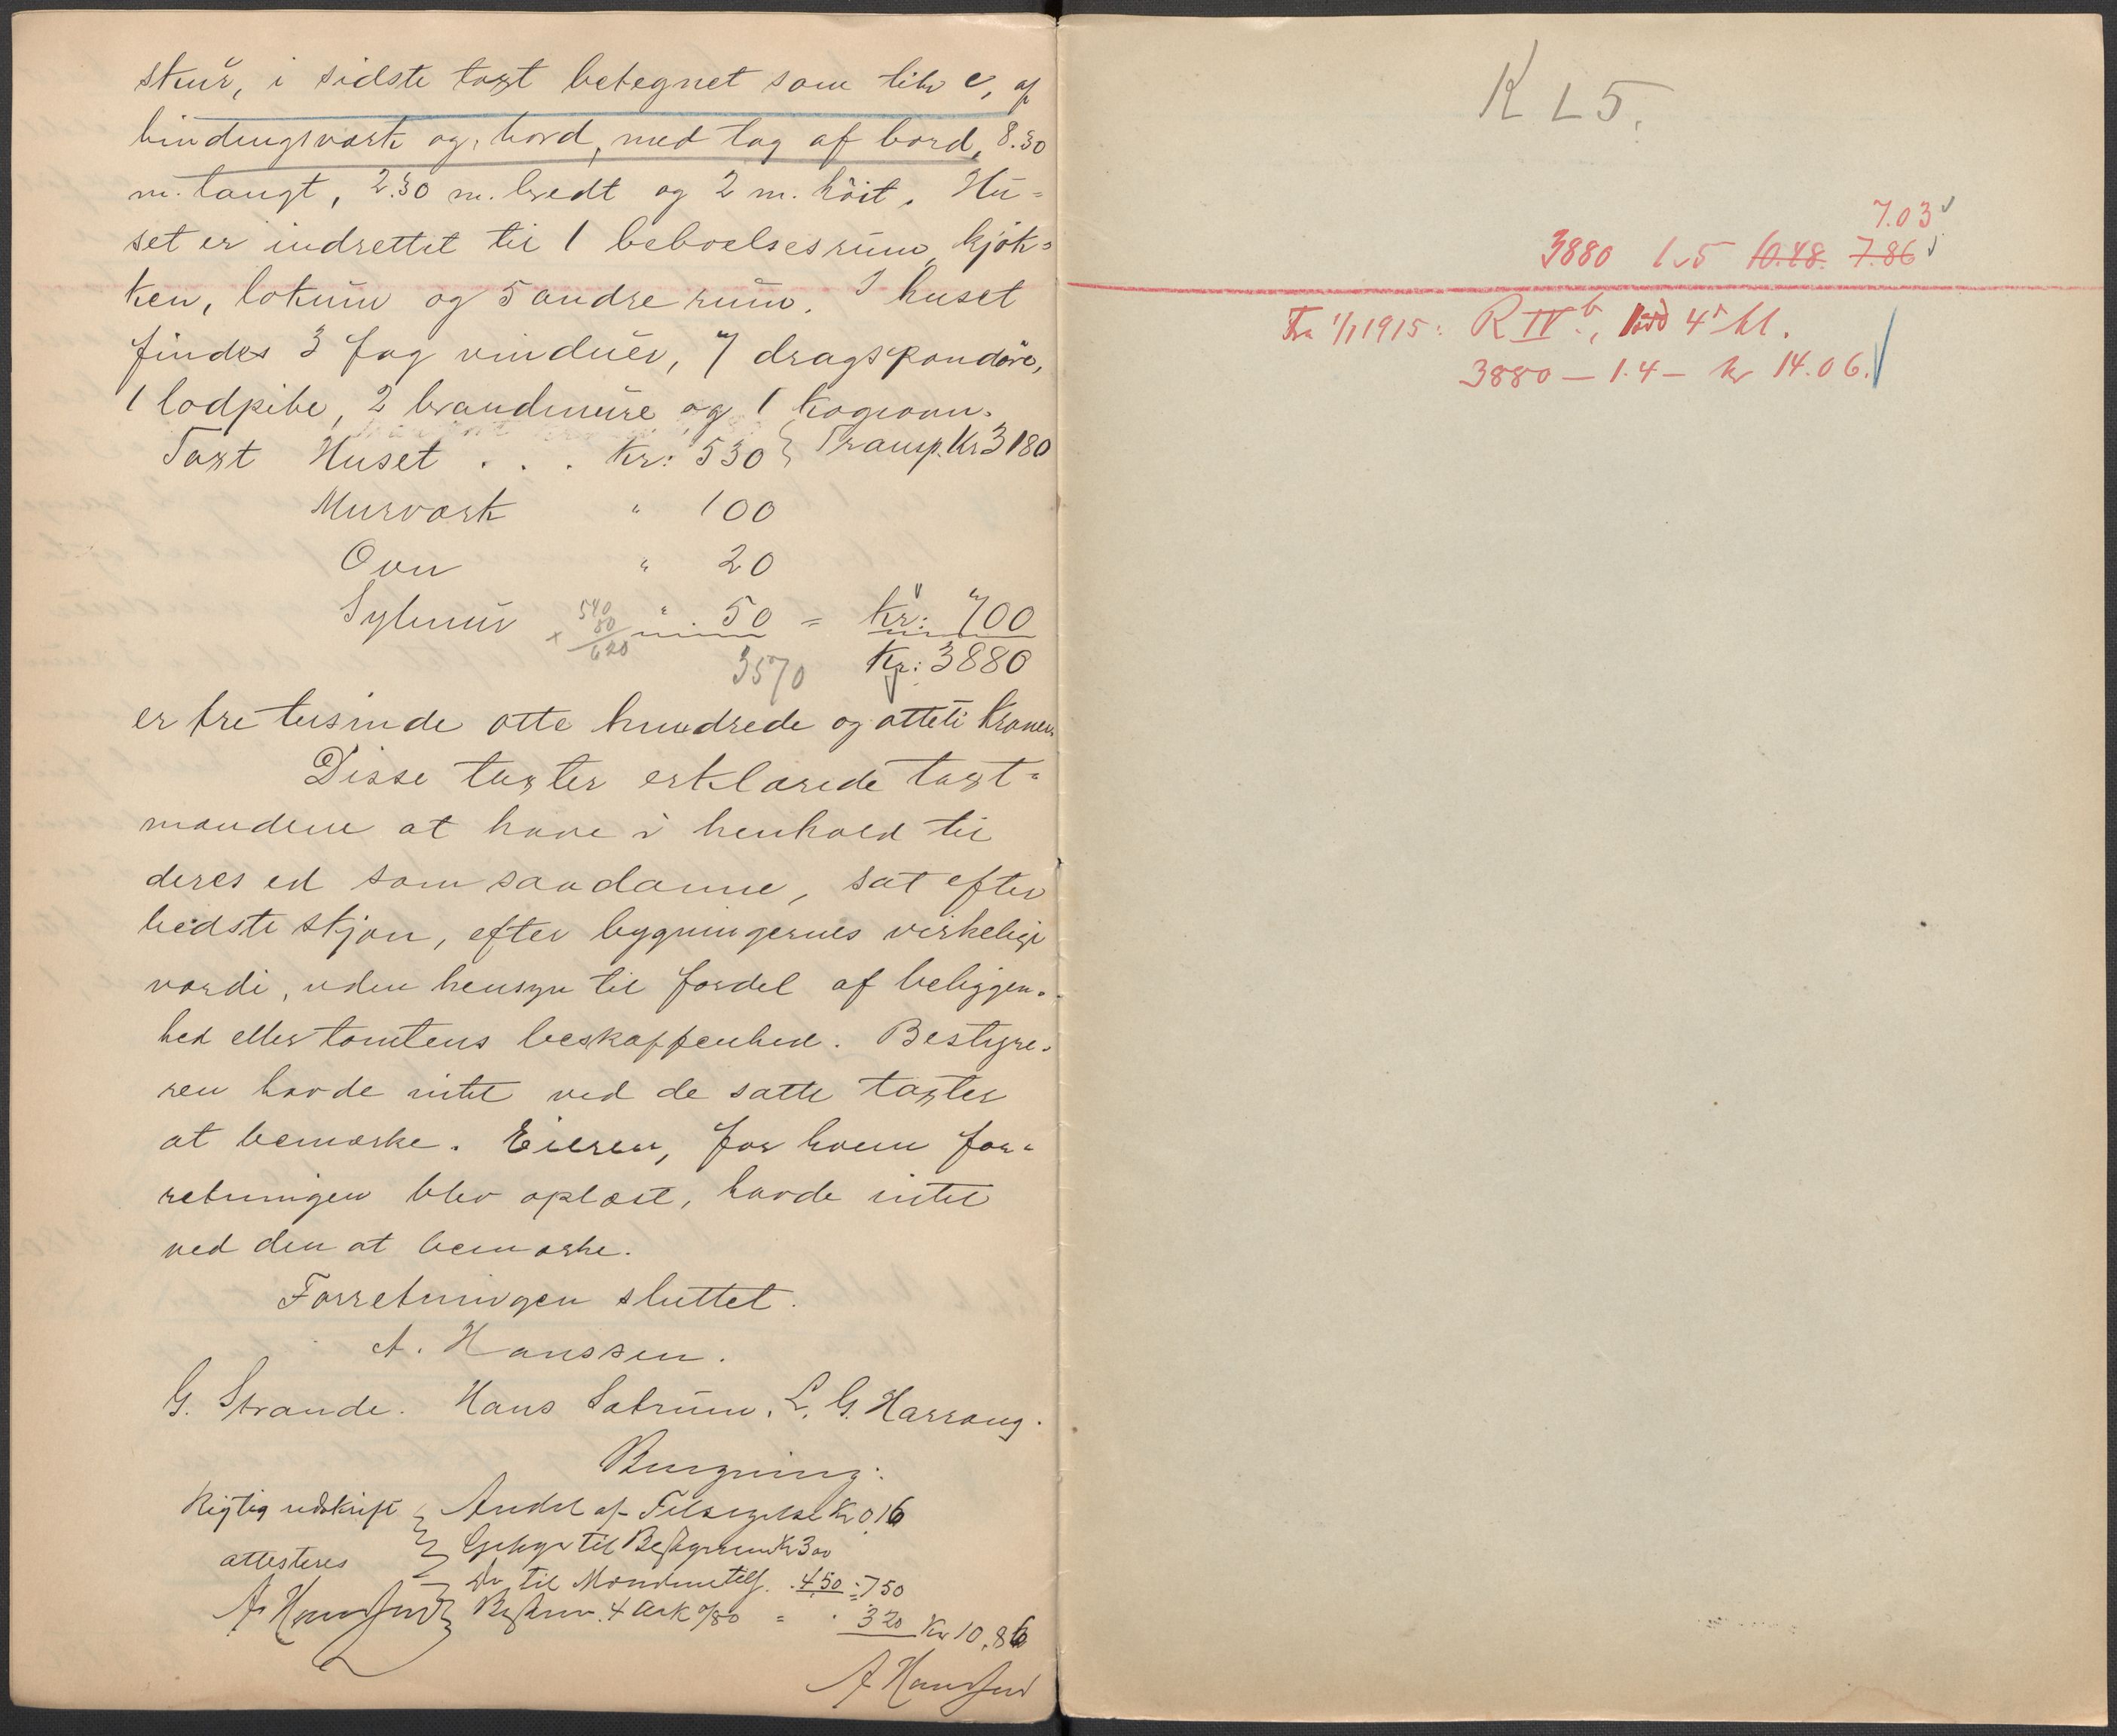 skur, i sidste taxt betegnet som litr c, af
bindingsværk og bord, med tag af bord, 8.30
m. langt, 2.30 m. bredt og 2 m. höit. Hu-
set er indrettet til 1 beboelsesrum, kjök-
ken, lokum og 5 andre rum. I huset
findes 3 fag vinduer, 7 dragspandöre,
1 lodpibe, 2 brandmure og 1 kogeovn.
Taxt Huset . . . Kr: 530 } Transp. Kr 3180
Murværk " 100
Ovn " 20
Sylmur " 50 = Kr: 700
540
80
x 620
3570 Kr: 3880
er tre tusinde otte hundrede og otteti Kroner
Disse taxter erklærede taxt-
mændene at have i henhold til
deres ed som saadanne, sat efter
bedste skjøn, efter bygningernes virkelige
værdi, uden hensyn til fordel af beliggen-
hed eller tomtens beskaffenhed. Bestyre-
ren havde intet ved de satte taxter
at bemærke. Eieren, for hvem for-
retningen blev oplæst, havde intet
ved den at bemærke.
Forretningen sluttet.
A. Hanssen.
G. Strande. Hans Sætrum. L. G. Harrang.
Rigtig udskrift
attesteres
A Hanssen
Regning:
Andel af Tilsigelse Kr 0,16
Gebyr til Bestyreren Kr 3 00
Do til Mændene tils. . 4,50 = 7 50
Beskriv. 4 Ark 0/80 = . 3 20 Kr 10,86
A Hanssen
K L 5.
7.03
3880 1.5 10.48. 7.86
Fra 1/1 1915: R IV b, 4 kl.
3880 — 1.4 — kr 14.06.